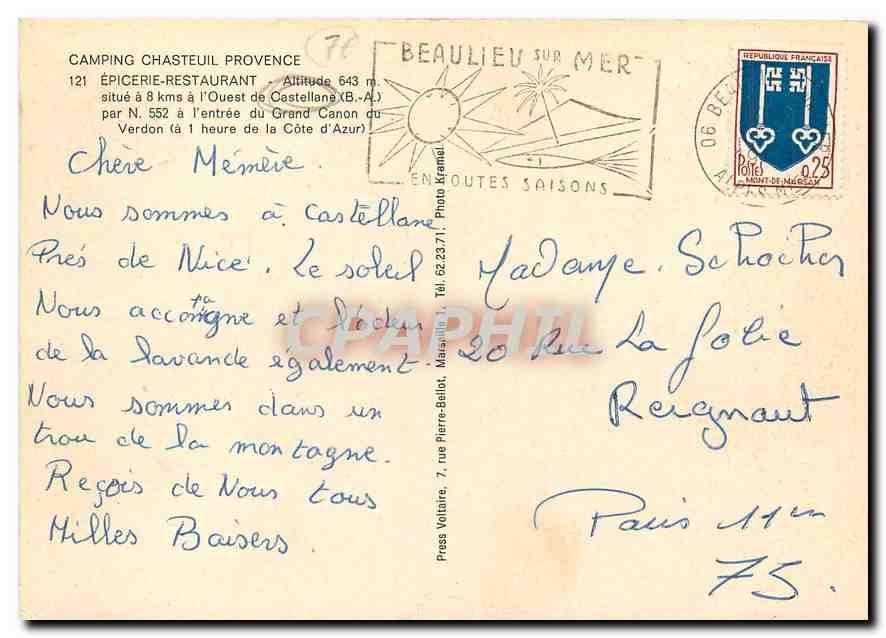 CAMPING CHASTEUIL PROVENCE
121 ÉPICERIE-RESTAURANT - Altitude 643 m.
situé à 8 kms à l'Ouest de Castellane (B.-A.)
par N. 552 à l'entrée du Grand Canon du
Verdon (à 1 heure de la Côte d'Azur)
7€
BEAULIEU SUR MER
EN TOUTES SAISONS
06 BEAU
REPUBLIQUE FRANÇAISE
POSTES 0,25
MONT-DE-MARSAN
Chère Mémère
Nous sommes à Castellane
Près de Nice. Le soleil
Nous accompagne et l'odeur
de la lavande également.
Nous sommes dans un
trou de la montagne.
Reçois de Nous tous
Milles Baisers.
Press Voltaire, 7, rue Pierre-Bellot, Marseille 1, Tél. 62.23.71. Photo Kramel
Madame Schocher
20 Rue La Jolie
Reignaut
Paris 11em
75.
CPAPHIL